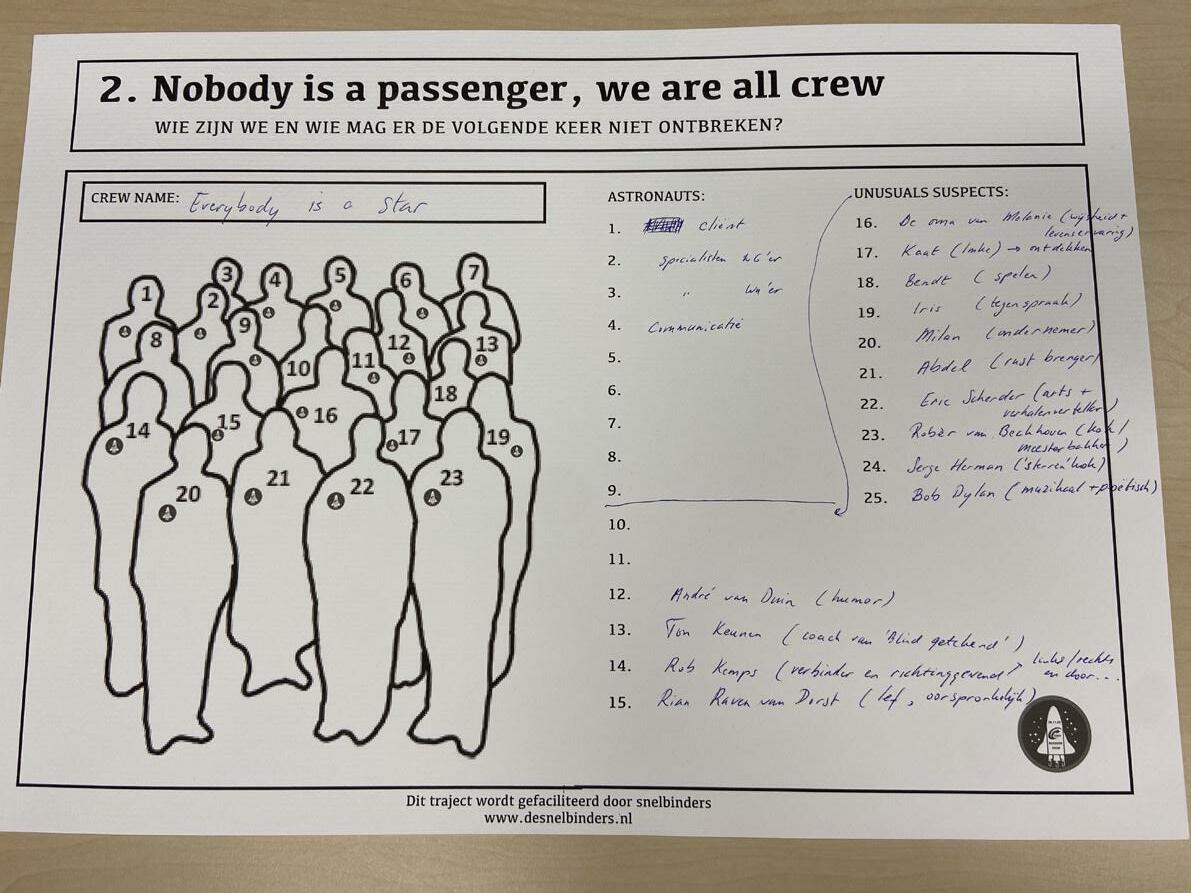 2. Nobody is a passenger, we are all crew
WIE ZIJN WE EN WIE MAG ER DE VOLGENDE KEER NIET ONTBREKEN?
CREW NAME: Everybody is a Star
1
2
3
4
5
6
7
8
9
10
11
12
13
14
15
16
17
18
19
20
21
22
23
ASTRONAUTS:
1. cliënt
2. specialisten WG'er
3. " Wn'er
4. Communicatie
5.
6.
7.
8.
9.
10.
11.
12. André van Duin (humor)
13. Ton Keunen (coach van 'Blind getekend')
14. Rob Kemps (verbinder en richtinggevend? links/rechts
en door...
15. Rian Raven van Dorst (lef, oorspronkelijk)
UNUSUALS SUSPECTS:
16. De oma van Melanie (wijsheid +
levenservaring)
17. Kaat (Imke) → ontdekken
18. Bendt (spelen)
19. Iris (tegenspraak)
20. Milan (ondernemer)
21. Abdel (rust brenger)
22. Eric Scherder (arts +
verhalenverteller)
23. Robèr van Beckhoven (kok/
meesterbakker)
24. Serge Herman ('sterren'kok)
25. Bob Dylan (muzikaal + poëtisch)
Dit traject wordt gefaciliteerd door snelbinders
www.desnelbinders.nl